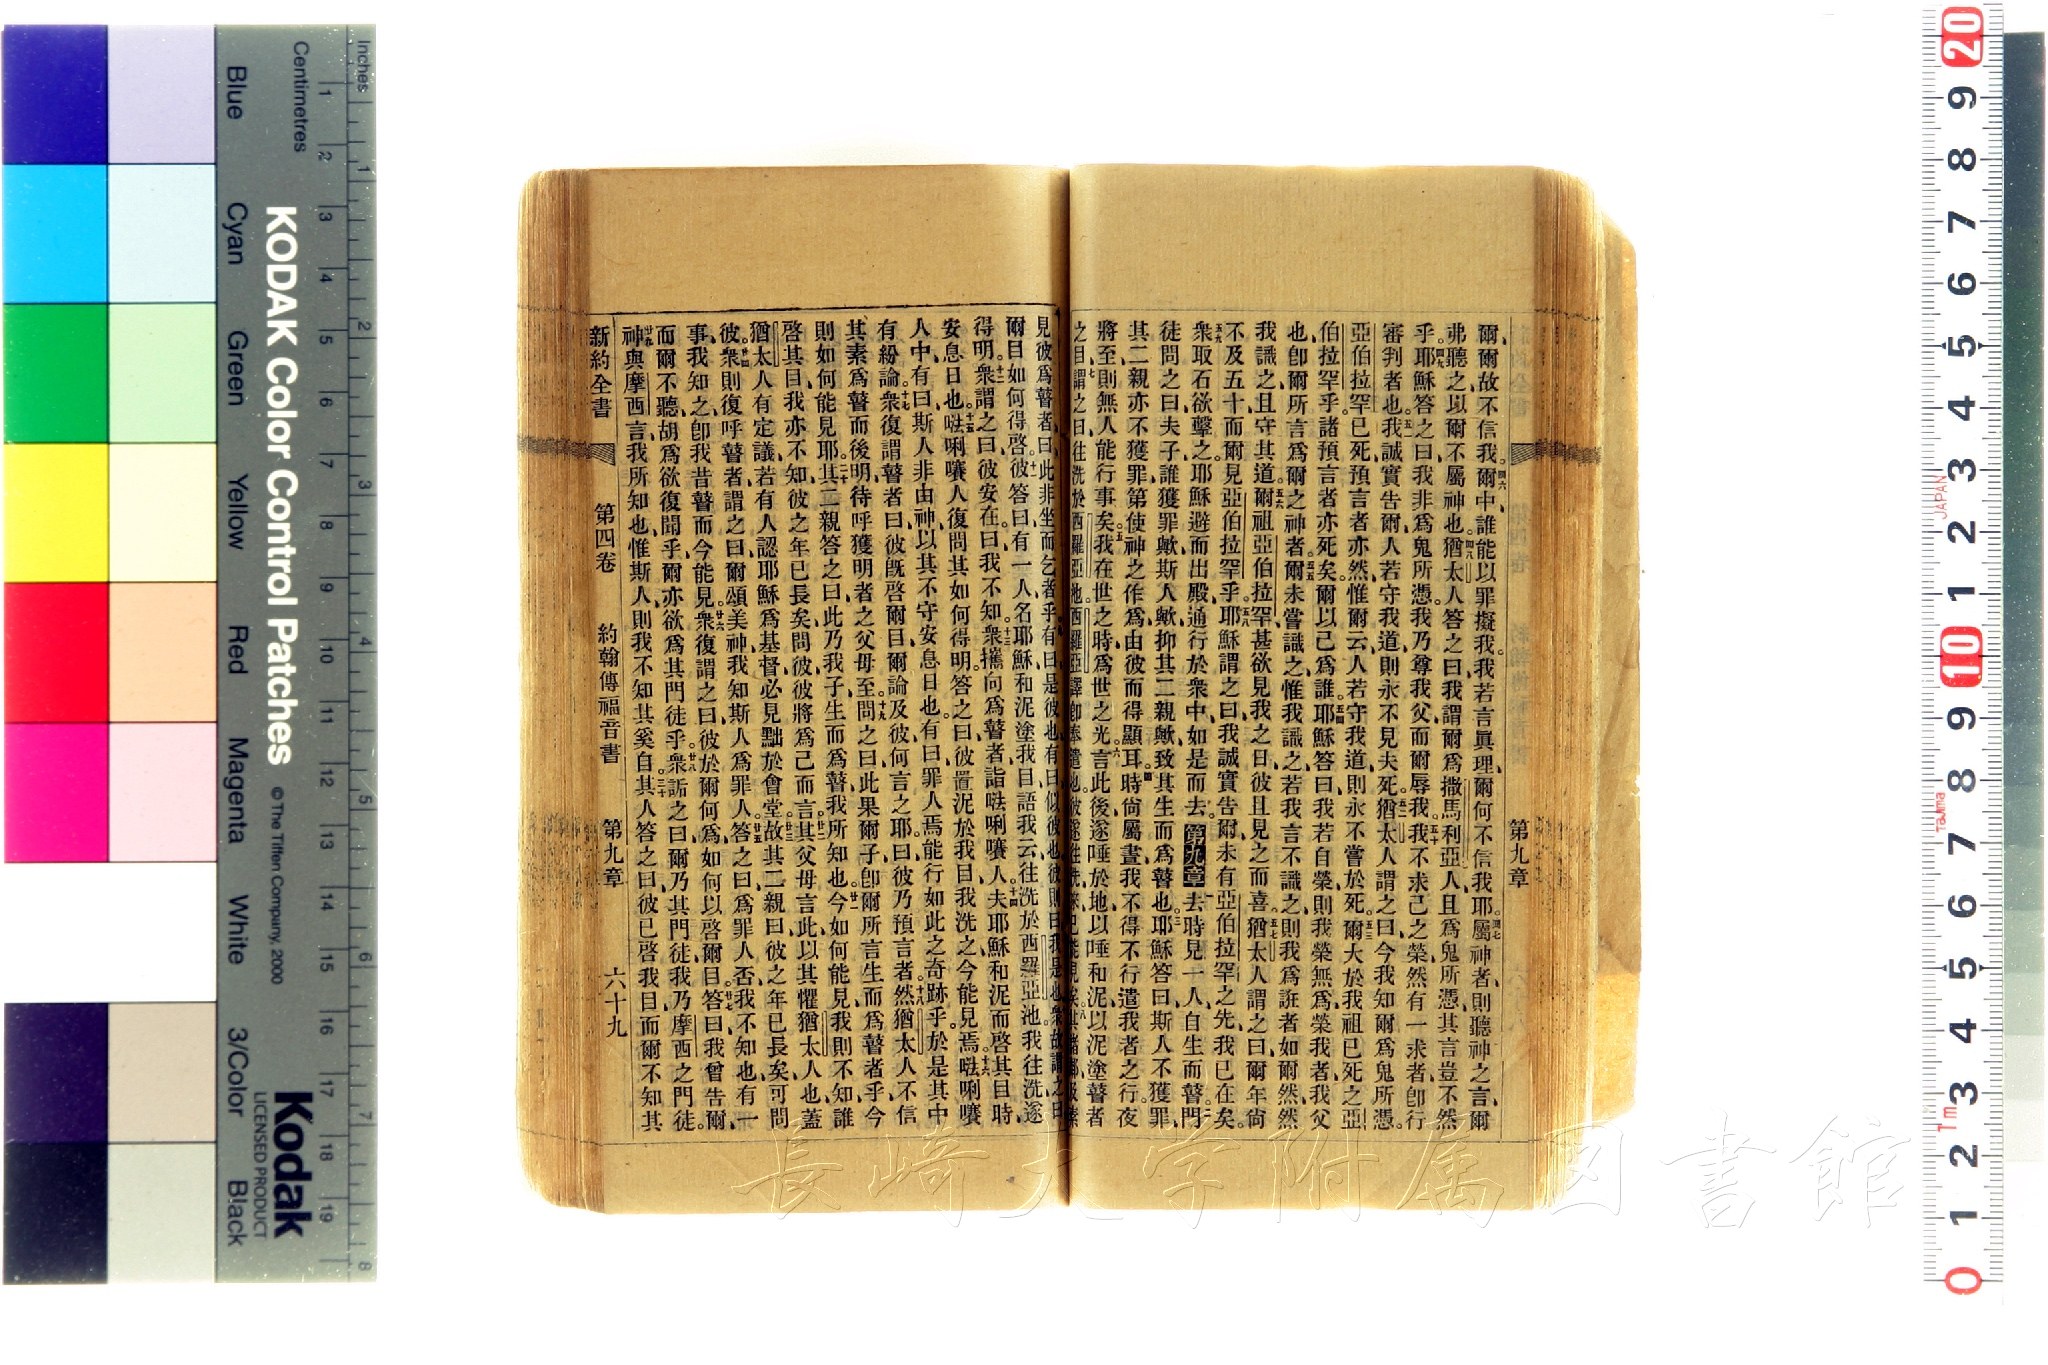 爾、爾故不信我、四六爾中誰能以罪擬我、我若言眞理、爾何不信我耶、四七屬神者、則聽神之言、爾
弗聽之、以爾不屬神也、四八猶太人答之曰、我謂爾爲撒馬利亞人、且爲鬼所憑、其言豈不然
乎、四九耶穌答之曰、我非爲鬼所憑、我乃尊我父、而爾辱我、五十我不求己之榮、然有一求者、卽行
審判者也、五一我誠實告爾、人若守我道、則永不見夫死、五二猶太人謂之曰、今我知爾爲鬼所憑、
亞伯拉罕已死、預言者亦然、惟爾云、人若守我道、則永不嘗於死、五三爾大於我祖已死之亞
伯拉罕乎、諸預言者亦死矣、爾以己爲誰、五四耶穌答曰、我若自榮、則我榮無爲、榮我者我父
也、卽爾所言爲爾之神者、五五爾未嘗識之、惟我識之、若我言不識之、則我爲誑者如爾然、然
我識之、且守其道、五六爾祖亞伯拉罕甚欲見我之日、彼且見之而喜、五七猶太人謂之曰、爾年尙
不及五十、而爾見亞伯拉罕乎、五八耶穌謂之曰、我誠實告爾、未有亞伯拉罕之先、我已在矣、
五九衆取石欲擊之、耶穌避而出殿、通行於衆中、如是而去、第九章 一去時見一人自生而瞽、二門
徒問之曰、夫子、誰獲罪歟、斯人歟、抑其二親歟、致其生而爲瞽也、三耶穌答曰、斯人不獲罪、
其二親亦不獲罪、第使神之作爲、由彼而得顯耳、四時尙屬晝、我不得不行遣我者之行、夜
將至、則無人能行事矣、五我在世之時、爲世之光、六言此後、遂唾於地、以唾和泥、以泥塗瞽者
之目、七謂之曰、往洗於西羅亞池、西羅亞譯卽奉遣也、彼遂往洗、
第九章
見彼爲瞽者曰、此非坐而乞者乎、有曰是彼也、有曰似彼也、彼則曰我是也、衆故謂之曰、
爾目如何得啓、十一彼答曰、有一人名耶穌、和泥塗我目、語我云、往洗於西羅亞池、我往洗、遂
得明、十二衆謂之曰、彼安在、曰、我不知、十三衆攜向爲瞽者詣𠵽唎㘔人、十四夫耶穌和泥而啓其目時、
安息日也、十五𠵽唎㘔人復問其如何得明、答之曰、彼置泥於我目、我洗之、今能見焉、十六𠵽唎㘔
人中、有曰、斯人非由神、以其不守安息日也、有曰、罪人焉能行如此之奇跡乎、於是其中
有紛論、十七衆復謂瞽者曰、彼旣啓爾目、爾論及彼何言之耶、曰、彼乃預言者、十八然猶太人不信
其素爲瞽而後明、待呼獲明者之父母至、十九問之曰、此果爾子、卽爾所言生而爲瞽者乎、今
則如何能見耶、二十其二親答之曰、此乃我子、生而爲瞽、我所知也、廿一今如何能見、我則不知、誰
啓其目、我亦不知、彼之年已長矣、問彼、彼將爲己而言、廿二其父母言此、以其懼猶太人也、蓋
猶太人有定議、若有人認耶穌爲基督、必見黜於會堂、廿三故其二親曰、彼之年已長矣、可問
彼、廿四衆則復呼瞽者、謂之曰、爾頌美神、我知斯人爲罪人、廿五答之曰、爲罪人否、我不知也、有一
事我知之、卽我昔瞽而今能見、廿六衆復謂之曰、彼於爾何爲、如何以啓爾目、廿七答曰、我曾告爾、
而爾不聽、胡爲欲復聞乎、爾亦欲爲其門徒乎、廿八衆詬之曰、爾乃其門徒、我乃摩西之門徒、
廿九神與摩西言、我所知也、惟斯人則我不知其奚自、三十其人答之曰、彼已啓我目、而爾不知其
新約全書 第四卷 約翰傳福音書 第九章 六十九
Inches
Centimetres
KODAK Color Control Patches
© The Tiffen Company, 2000
Kodak
LICENSED PRODUCT
Blue Cyan Green Yellow Red Magenta White 3/Color Black
JAPAN
Tajima
長崎大学附属図書館